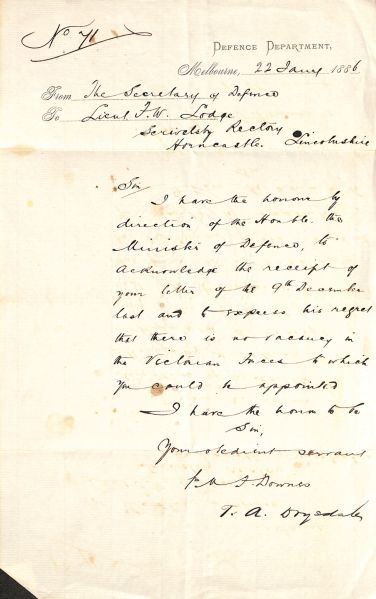 No 71
DEFENCE DEPARTMENT,
Melbourne, 22 Jany 1886
From The Secretary of Defence
To Lieut F. W. Lodge
Scrivelsby Rectory
Horncastle. Lincolnshire
Sir
I have the honour by
direction of the Honble. the
Minister of Defence, to
acknowledge the receipt of
your letter of the 9th December
last and to express his regret
that there is no vacancy in
the Victorian Forces to which
you could be appointed
I have the honor to be
Sir,
Your obedient servant
M. F. Downes
T. A. Drysdale